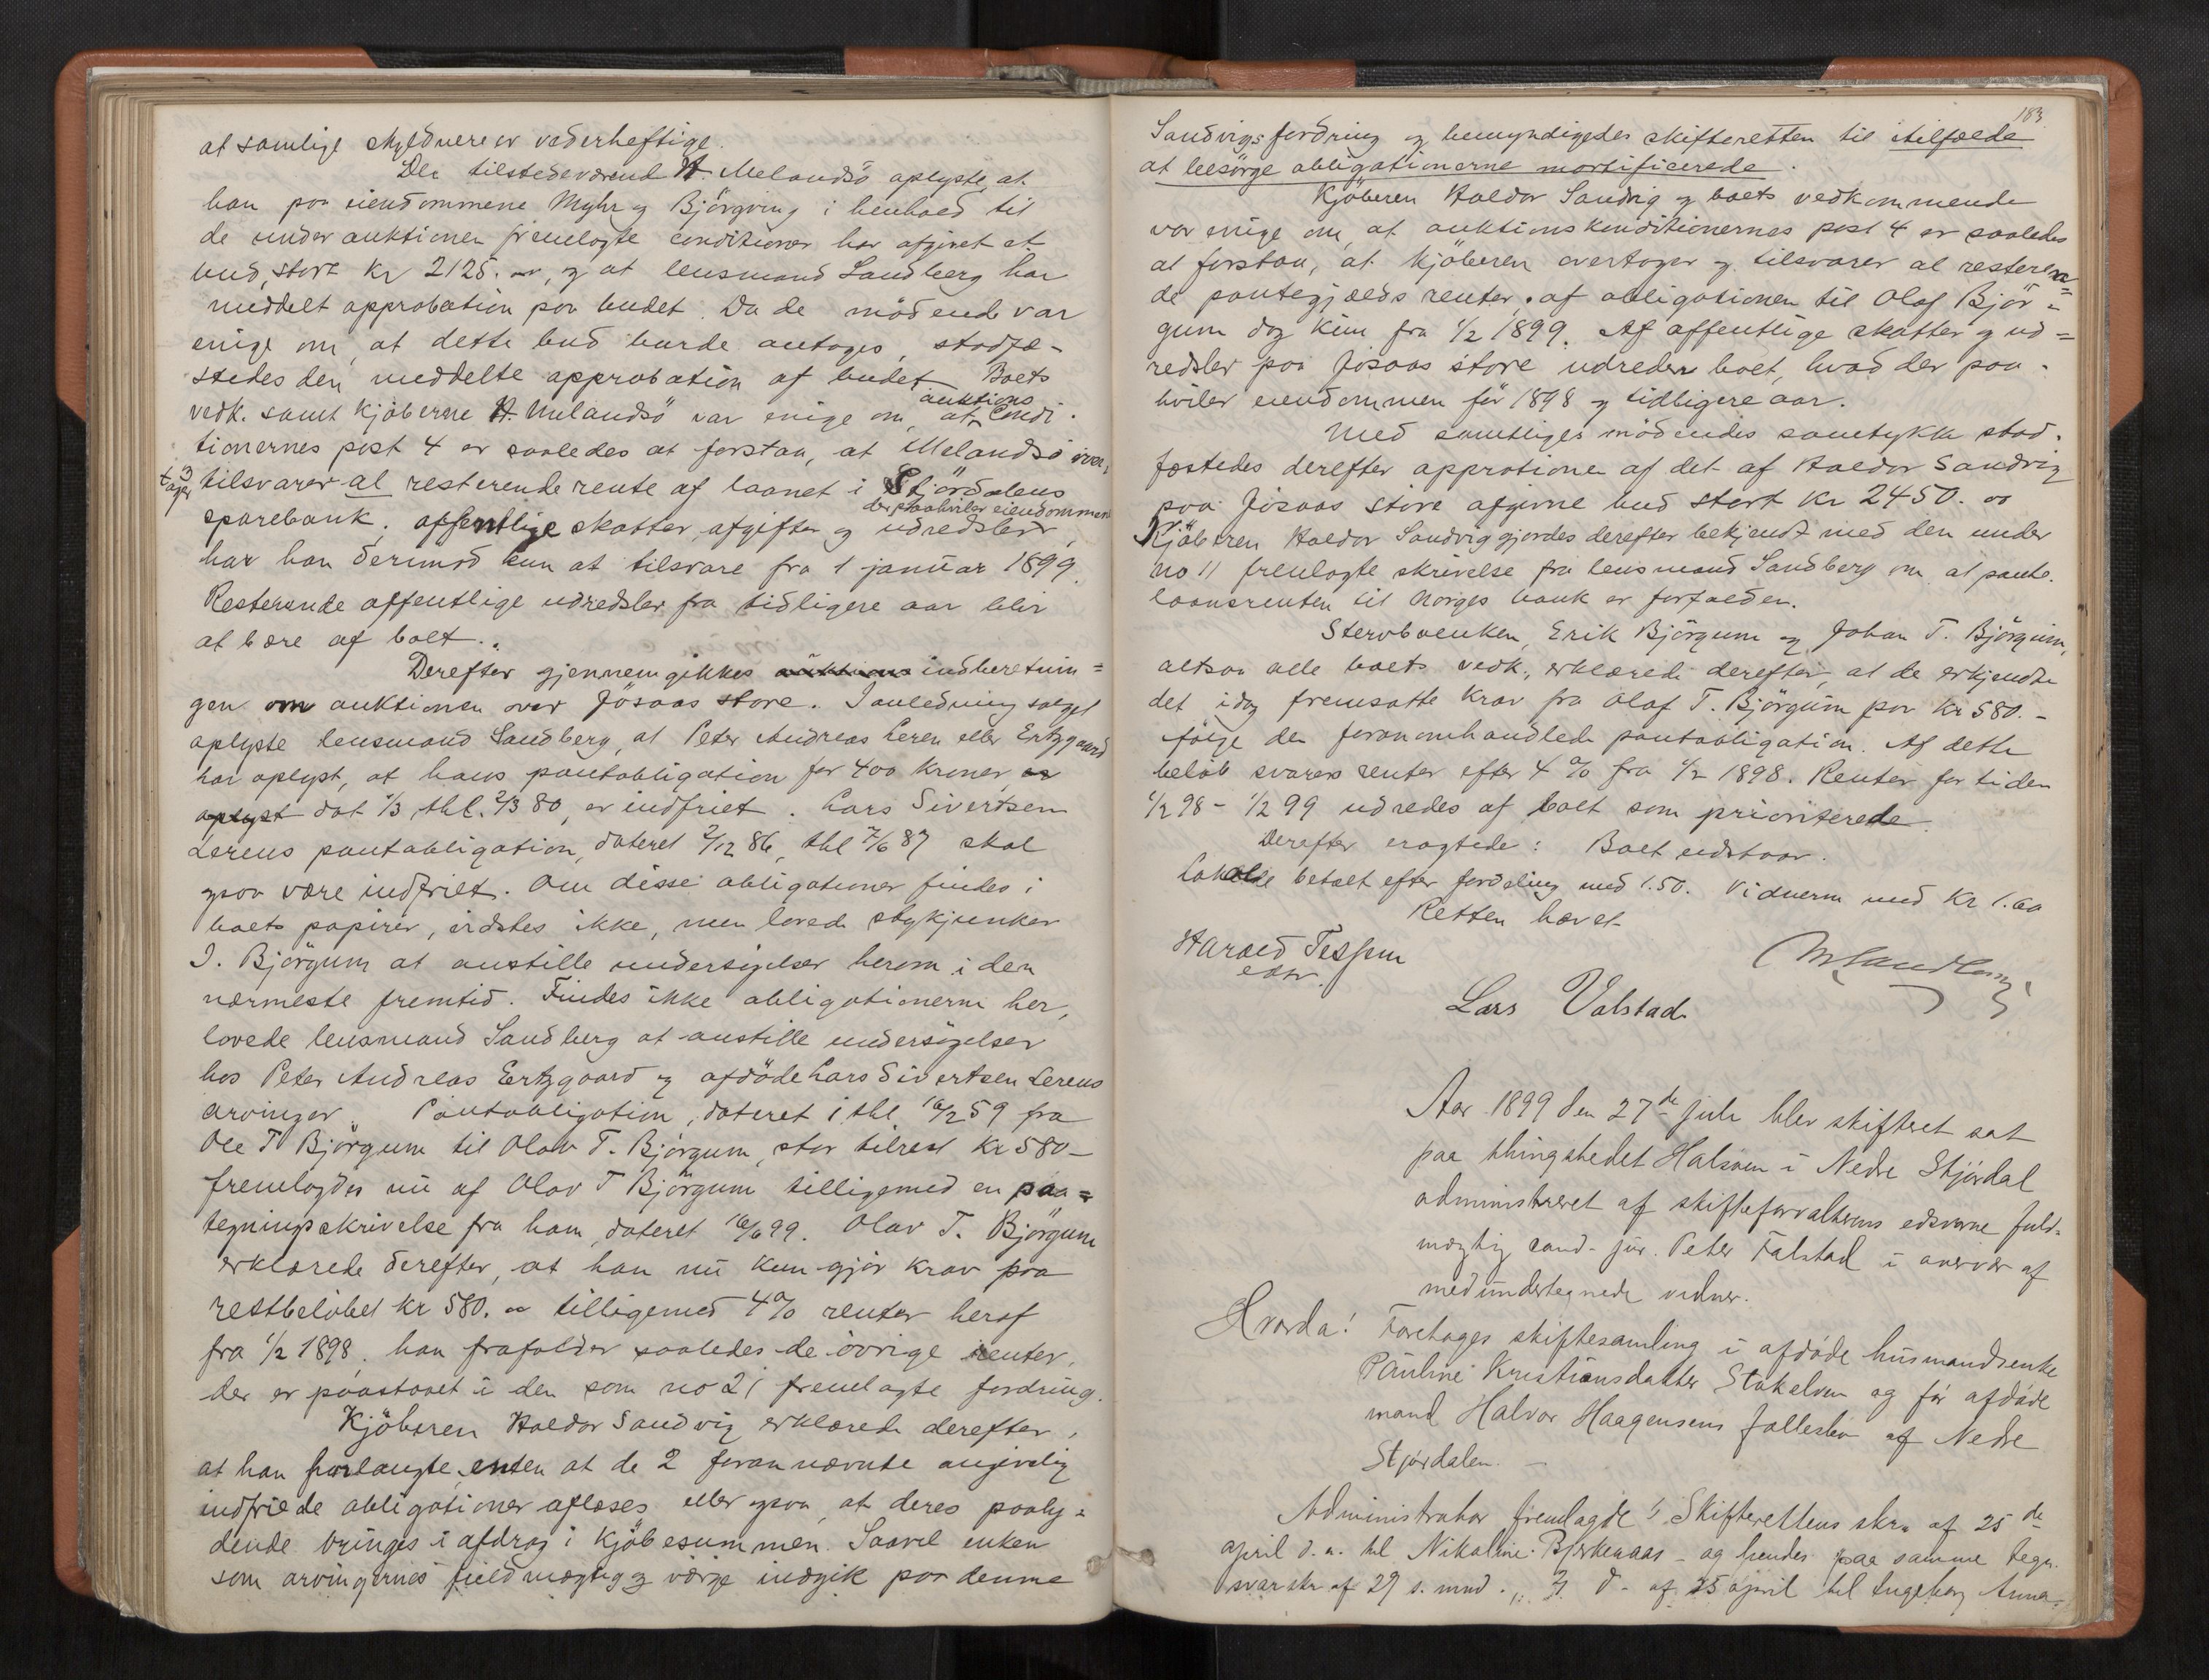 at samlige skyldnere er vederheftige.
Den tilstedeværend H. Melandsö oplyste, at
han paa eiendommene Myhr og Björgving i henhold til
de under auktionen fremlagte conditioner har afgivet et
bud, stort kr 2125.00, og at lensmand Sandberg har
meddelt approbation paa budet. Da de mödende var
enige om, at dette bud burde antages, stadfæ-
stedes den meddelte approbation af budet. Boets
vedk. samt kjöberne H. Melandsö var enige om, at auktions Condi-
tionernes post 4 er saaledes at forstaa, at Melandsö over-
tager og tilsvarer al resterende rente af laanet i Stjördalens
sparebank. offentlige skatter, afgifter og udredsler, der paahviler eiendommen
har han derimod kun at tilsvare fra 1 januar 1899.
Resterende offentlige udredsler fra tidligere aar blir
at bære af boet.
Derefter gjennemgikkes auktions indberetnin=
gen om auktionen over Jösaas store. I anledning salget
oplyste lensmand Sandberg, at Peter Andreas Leren eller Ertzgaard
har oplyst, at hans pantobligation for 400 kroner er
oplyst dat 1/3 thl. 2/3 80, er indfriet. Lars Sivertsen
Lerens pantobligation, dateret 2/12 86, thl 7/6 87 skal
ogsaa være indfriet. Om disse obligationer findes i
boets papirer, vidstes ikke, men lovede stykjunker
I. Björgum at anstille undersögelser herom i den
nærmeste fremtid. Findes ikke obligationerne her,
lovede lensmand Sandberg at anstille undersögelser
hos Peter Andreas Ertzgaard og afdöde Lars Sivertsen Lerens
arvinger. Pantobligation, dateret i thl. 16/2 59 fra
Ole T Björgum til Olav T. Björgum, stor tilrest kr 580-
fremlagdes nu af Olav T Björgum tilligemed en paa=
tegningsskrivelse fra ham, dateret 16/6 99. Olav T. Björgum
erklærede derefter, at han nu kun gjör krav paa
restbelöbet kr 580.00 tilligemed 4% renter heraf
fra 1/2 1898, han frafalder saaledes de övrige renter,
der er paastaaet i den som no 21 fremlagte fordring.
Kjöberen Haldor Sandvig erklærede derefter,
at han forlangte, enten at de 2 forannævnte angivelig
indfriede obligationer aflæses eller ogsaa, at deres paaly=
dende bringes i afdrag i kjöbesummen. Saavel enken
som arvingernes fuldmægtig og værge indgik paa denne
183
Sandvigs fordring og bemyndigedes skifteretten til itilfælde
at besörge obligationerne mortificerede.
Kjöberen Haldor Sandvig og boets vedkommende
var enige om, at auktionskonditionernes post 4 er saaledes
at forstaa, at kjöberen overtager og tilsvarer al resteren=
de pantegjælds renter, af obligationen til Olaf Björ=
gum dog kun fra 1/2 1899. Af offentlige skatter og ud=
redsler paa Jösaas store udreder boet, hvad der paa-
hviler eiendommen för 1898 og tidligere aar.
Med samtliges mödendes samtykke stad-
fæstedes derefter approtionen af det af Haldor Sandvig
paa Jösaas store afgivne bud stort kr 2450.00
Kjöberen Haldor Sandvig gjordes derefter bekjendt med den under
no 11 fremlagte skrivelse fra lensmand Sandberg om, at pante-
laansrenten til Norges bank er forfalden.
Stervboenken, Erik Björgum og Johan T. Björgum,
altsaa alle boets vedk., erklærede derefter, at de erkjendte
det idag fremsatte krav fra Olaf T. Björgum paa kr 580.-
ifölge den foranomhandlede pantobligation. Af dette
belöb svares renter efter 4% fra 1/2 1898. Renter for tiden
1/2 98 - 1/2 99 udredes af boet som prioriterede.
Derefter eragtede: Boet udstaar.
Lokale betalt efter fordeling med 1.50. Vidnerne med kr 1.60
Retten hævet
Harald Tessem
edsv.
Lars Valstad
Aar 1899 den 27de juli blev skifteret sat
paa thingstedet Halsøen i Nedre Stjørdal
administreret af skifteforvalterens edsvorne fuld-
mægtig cand. jur. Peter Falstad i overvær af
medundertegnede vidner.
Hvorda! Foretages skiftesamling i afdøde husmandsenke
Pauline Kristiansdatter Stokelven og før afdøde
mand Halvor Haagensens fællesbo af Nedre
Stjørdalen. -
Administrator fremlagde 1, Skifterettens skr. af 25de
april d. a. til Nikoline Bjerkenaas - og hendes paa samme tegn.
svarskr af 29 s. mnd. „ 2, d- af 25 april til Ingeborg Anna-